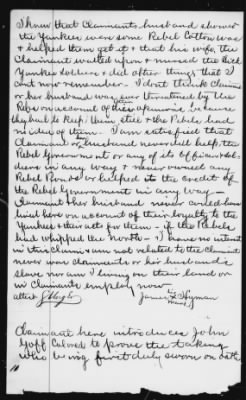 I know that Claimants husband showed
the Yankees were some Rebel Cotton was
& helped them get it & that his wife, the
Claimant waited upon & nursed the sick
Yankee soldiers & did other things that I
cant now remember. I dont think Claimant
or her husband was ever threatened by the
Rebs on account of their opinions, because
they had to keep them still & the Rebels had
no idea of them. I am satisfied that
Claimant or husband never did help the
Rebel Government or any of its officers & sol-
diers in any way & never owned any
Rebel Bonds or helped it to the credit of
the Rebel Government in any way.
Claimant & her husband never could have
lived here on account of their loyalty to the
Yankees & their acts for them if the Rebels
had whipped the North. I have no interest
in this claim & am not related to the Claimant
never was claimants or her husbands
slave nor am I living on their land or
in Claimants employ now.
attest
James Hyman
mark
Claimant here introduces John
Goff Colored to prove the taking
who being first duly sworn on oath